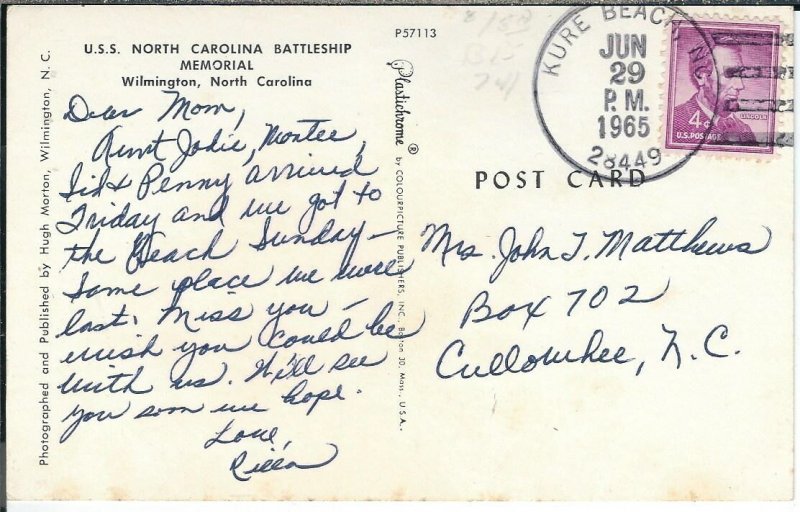 P57113
U.S.S. NORTH CAROLINA BATTLESHIP
MEMORIAL
Wilmington, North Carolina
Dear Mom,
Aunt Jodie, Montee,
Sid & Penny arrived
Friday and we got to
the Beach Sunday —
Same place we were
last. Miss you —
wish you could be
with us. Will see
you soon we hope.
Love,
Photographed and Published by Hugh Morton, Wilmington, N. C.
Plastichrome ® by COLOURPICTURE PUBLISHERS, INC., Boston 30, Mass., U.S.A.
KURE BEACH, N.C.
JUN
29
P.M.
1965
28449
4¢
LINCOLN
U.S. POSTAGE
POST CARD
Mrs. John T. Matthews
Box 702
Cullowhee, N.C.